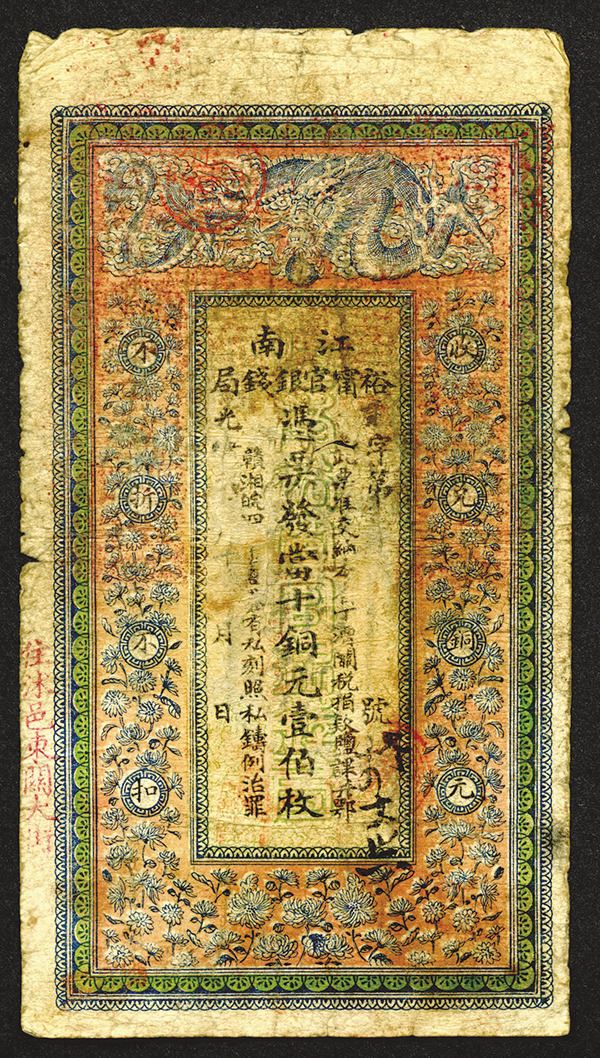 江南
裕甯官銀錢局
收兌銅元
字第 號
此票准交納 丁漕關税捐款鹽課 鄂
憑票發當十銅元壹佰枚
贛湘皖四 者私刻照私鑄例治罪
光 月 日
不折不扣
住沭邑東關大街